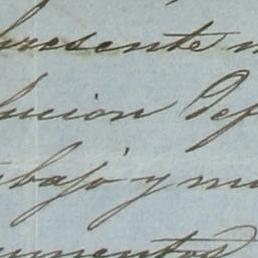 presente m
lucion def
abajo y m
umentos